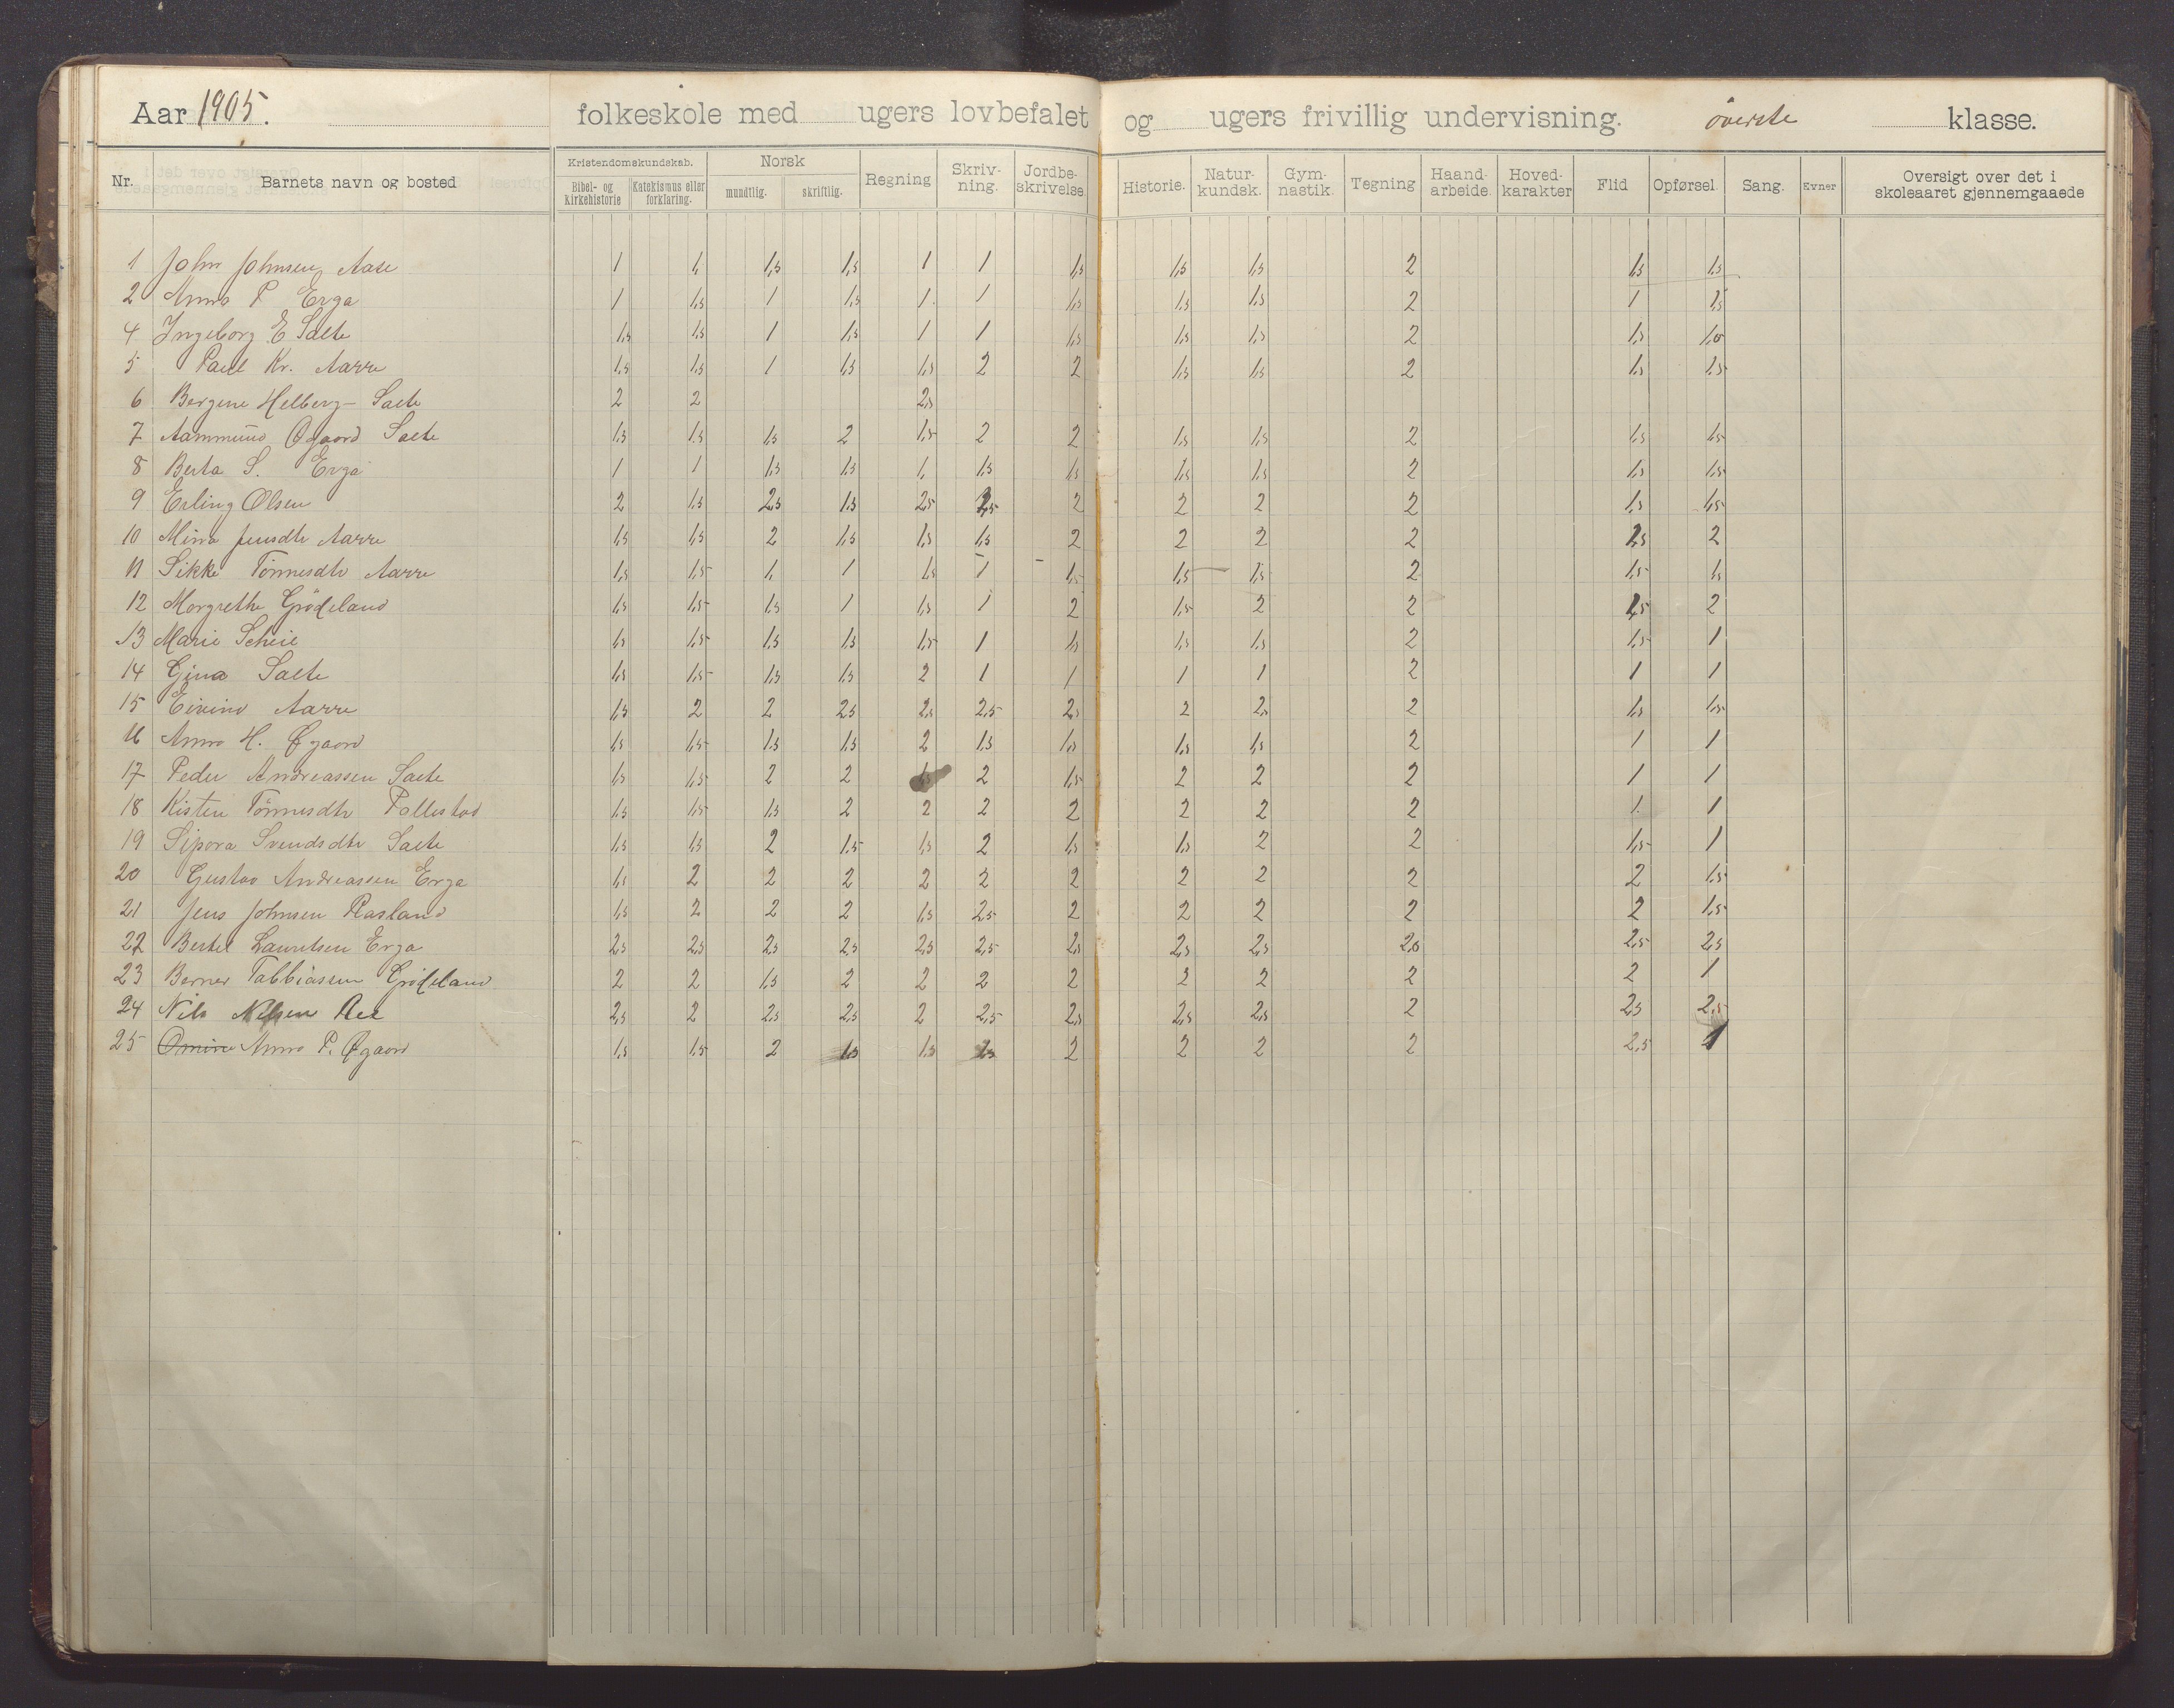 Aar 1905. folkeskole med ugers lovbefalet og ugers frivillig undervisning. överste klasse.
Nr. Barnets navn og bosted Kristendomskundskab. Bibel- og Kirkehistorie Katekismus eller forklaring. Norsk mundtlig. skriftlig. Regning Skriv-ning. Jordbe-skrivelse Historie. Natur-kundsk. Gym-nastik. Tegning Haand-arbeide. Hoved-karakter Flid Opførsel. Sang. Evner Oversigt over det i skoleaaret gjennemgaaede
1 John Johnsen Aase 1 1, 1,5 1,5 1 1 1,5 1,5 1,5 2 1,5 1,5
2 Anna P Erga 1 1,5 1 1,5 1. 1 1,5 1,5 1,5 2 1 1,5
4 Ingeborg E Salte 1,5 1,5 1 1,5 1 1 1,5 1,5 1,5 2 1,5 1,5
5 Paul Kr. Aarre 1,5 1,5 1 1,5 1,5 2 2 1,5 1,5 2 1,5 1,5
6 Bergine Helberg- Salte 2 2 2,5
7 Aammund Øgaard Salte 1,5 1,5 1,5 2 1,5 2 2 1,5 1,5 2 1,5 1,5
8 Berta S. Erga 1 1 1,5 1,5 1, 1,5 1,5 1,5 1,5 2 1,5 1,5
9 Erling Olsen 2 1,5 2,5 1,5 2,5 2,5 2 2 2 2 1,5 1,5
10 Mina Jensdtr Aarre 1,5 1,5 2 1,5 1,5 1,5 2 2 2 2 1,5 2
11 Sikke Tönnesdtr Aarre 1,5 1,5 1, 1 1,5 1 1,5 1,5 1,5 2 1,5 1,5
12 Margrethe Grödeland 1,5 1,5 1,5 1 1,5 1 2 1,5 2 2 1,5 2
13 Marie Scheie 1,5 1,5 1,5 1,5 1,5 1 1,5 1,5 1,5 2 1,5 1
14 Gina Salte 1,5 1,5 1,5 1,5 2 1 1 1 1 2 1 1
15 Eivind Aarre 1,5 2 2 2,5 2,5 2,5 2,5 2 2,5 2 1,5 1,5
16 Anna H. Øgaard 1,5 1,5 1,5 1,5 2 1,5 1,5 1,5 1,5 2 1 1
17 Peder Andreassen Salte 1,5 1,5 2 2 1,5 2 1,5 2 2 2 1 1
18 Kisten Tönnesdtr Pollestad 1,5 1,5 1,5 2 2 2 2 2 2 2 1. 1
19 Sipora Svendsdtr Salte 1,5 1,5 2 1,5 1,5 2 1,5 1,5 2 2 1,5 1
20 Gustav Andreassen Erga 1,5 2 2 2 2 2 2 2 2 2 2 1,5
21 Jens Johnsen Rasland 1,5 2 2 2 1,5 2,5 2 2 2 2 2 1,5
22 Bertel Lauritsen Erga 2,5 2,5 2,5 2,5 2,5 2,5 2,5 2,5 2,5 2,5 2,5 2,5
23 Berner Tabbiassen Grödeland 2 2 1,5 2 2 2 2 2 2 2 2 1
24 Nils Nilsen Ree 2,5 2 2,5 2,5 2 2,5 2,5 2,5 2,5 2 2,5 2,5
25 Anna P. Øgaard 1,5 1,5 2 1,5 1,5 2 2 2 2 2,5 1